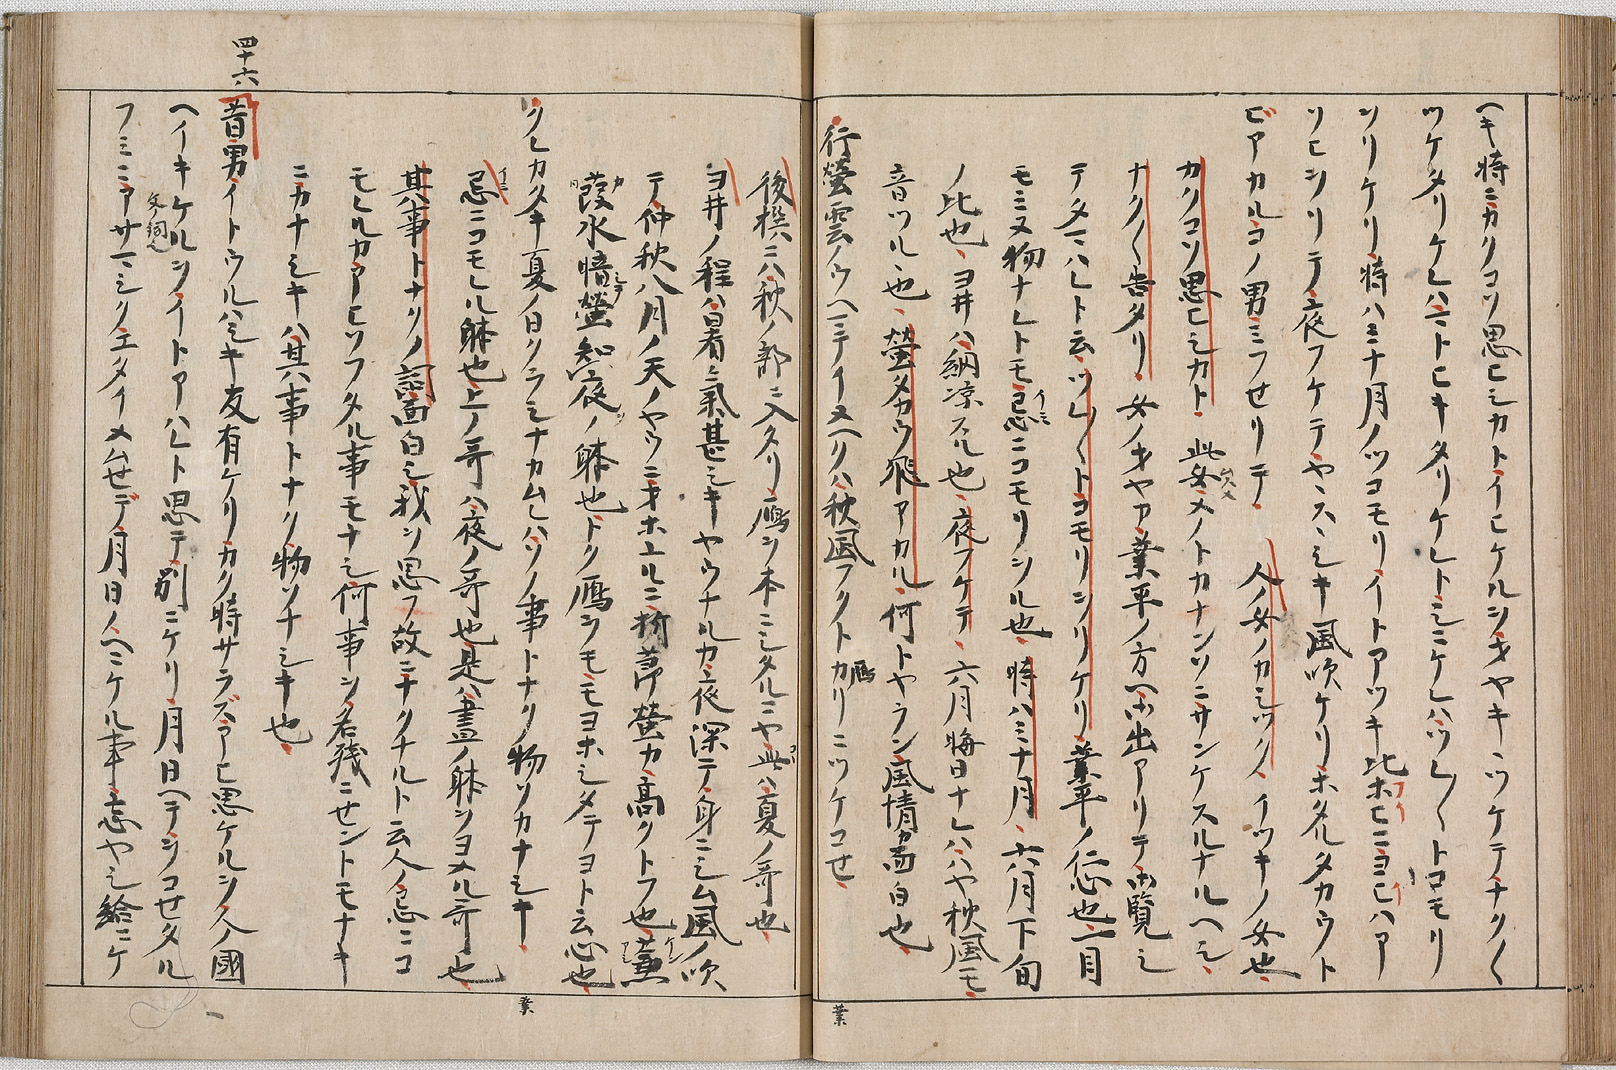 ヘキ時ニカクコソ思ヒシカトイヒケルヲオヤキヽツケテナク〱
ツケタリケレハマトヒキタリケレトシニケレハツレ〱トコモリ
ヲリケリ時ハミナ月ノツコモリイトアツキ比ホヒニヨヒハア
ソヒヲリテ夜フケテヤヽスヽシキ風吹ケリホタルタカウト
ビアカルコノ男ミフせリテ、人ノ女ノカシツク、イツキノ女也、
カクコソ思ヒシカト、此女メノトカナンソニサンケスルナルヘシ、
ナク〱告タリ、女ノオヤカ業平ノ方ヘ申出アリテ御覧シ
テタマハレト云、ツレ〱トコモリヲリケリ、業平ノ心也、一目
モミヌ物ナレトモ忌ニコモリヲル也、時ハミナ月、六月下旬
ノ比也、ヨヰハ納涼スル也、夜フケテ、六月晦日ナレハハヤ秋風モ
音ツル也、螢タカウ飛アカル、何トヤラン風情カ面白也、
行螢雲ノウヘマテイヌヘクハ秋風フクトカリニツケコせ、
業
後撰ニハ秋ノ部ニ入タリ、鴈ヲ本ニシタルニヤ、此ハ夏ノ哥也、
ヨ井ノ程ハ暑気甚シキヤウナルカ、夜深テ身ニシム風ノ吹
テ仲秋八月ノ天ノヤウニオホユルニ、折節螢カ高クトフ也、
葭水暗螢知夜ノ躰也、トク鴈ヲモモヨホシタテヨト云心也、
クレカタキ夏ノ日クラシナカムレハソノ事トナク物ソカナシキ、
忌ニコモレル躰也、上ノ哥ハ夜ノ哥也、是ハ晝ノ躰ヲヨメル哥也、
其事トナクノ詞面白シ、我ヲ思フ故ニナクナルト云人ノ忌ニコ
モレルカアヒソフタル事モナシ、何事ヲ名残ニせントモナキ
ニカナシキハ其事トナク物ソナシキ也、
業
四十六
昔男イトウルハシキ友有ケリカタ時サラズアヒ思ケルヲ人ノ國
ヘイキケルヲイトアハレト思テ別ニケリ月日ヘテヲコせタル
文ノ詞也
フミニアサマシクエタイメムせデ月日ノヘニケル事忘ヤシ給ニケ